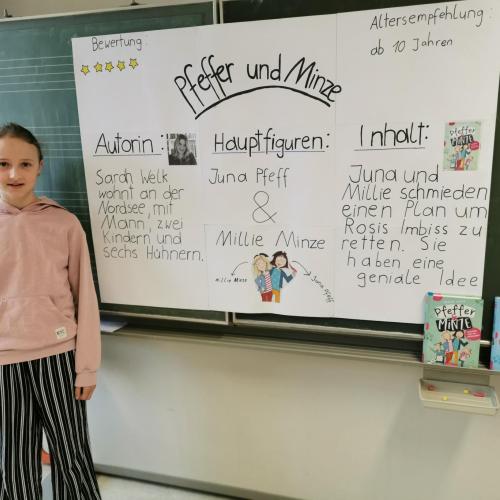 Bewertung:
Altersempfehlung:
ab 10 Jahren
Pfeffer und Minze
Autorin:
Sarah Welk
wohnt an der
Nordsee, mit
Mann, zwei
Kindern und
sechs Hühnern.
Hauptfiguren:
Juna Pfeff
&
Millie Minze
Millie Minze
Juna Pfeff
Inhalt:
Juna und
Millie schmieden
einen Plan um
Rosis Imbiss zu
retten. Sie
haben eine
geniale Idee
Pfeffer
MiNZE
Pfeffer
MiNZE